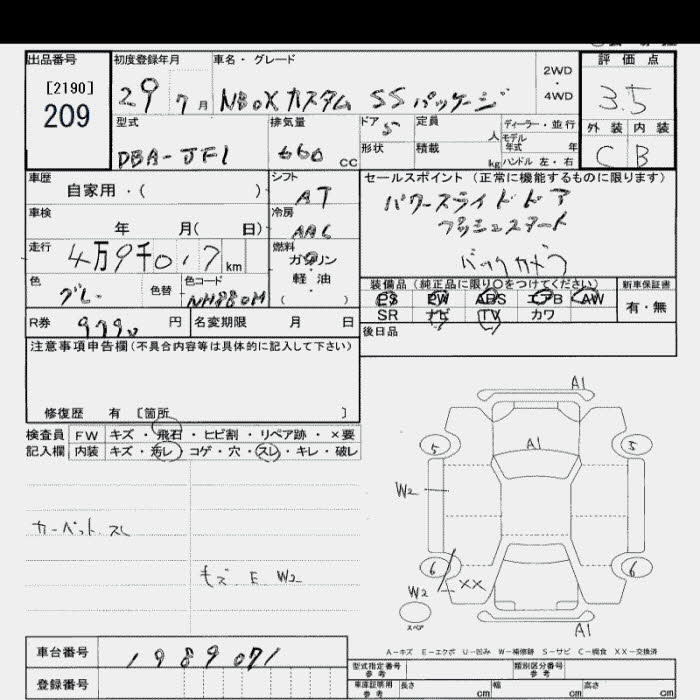 出品番号 初度登録年月 車名・グレード 2WD・4WD 評価点
[2190]
209 29 7月 NBOXカスタム SSパッケージ 3.5
型式 排気量 ドア 5 定員 人 ディーラー・並行 外装 内装
DBA-JF1 660 cc 形状 積載 kg モデル年式 年 ハンドル 左・右 C B
車歴 シフト セールスポイント (正常に機能するものに限ります)
自家用・( ) AT パワースライドドア
車検 冷房 プッシュスタート
年 月( 日) AAC バックカメラ
走行 4万9千017km 燃料 ガソリン・軽油 ( )
色 グレ 色替 色コード NH880M
装備品(純正品に限り○をつけてください) 新車保証書
PS PW ABS エアB AW 有・無
SR ナビ TV カワ
R券 円 名変期限 月 日 後日品
注意事項申告欄(不具合内容等は具体的に記入して下さい)
修復歴 有 [箇所 ]
検査員 FW キズ・飛石・ヒビ割・リペア跡・×要
記入欄 内装 キズ・汚レ・コゲ・穴・スレ・キレ・破レ
A1
5 A1 5
W2
カーペット スレ
キズ E W2
6 6
W2 XX
スペア
A1
A-キズ E-エクボ U-凹み W-補修跡 S-サビ C-腐食 XX-交換済
車台番号 1989071
登録番号
型式指定番号 参考 類別区分番号 参考
車庫証明用 参考 長さ cm 幅 cm 高さ cm